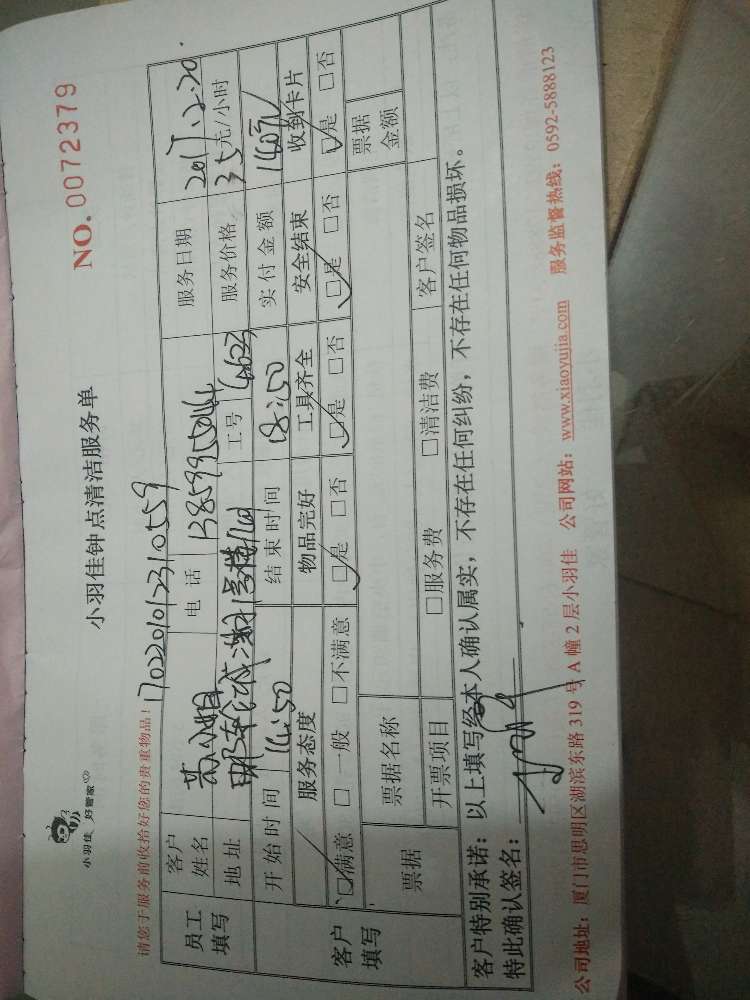 小羽佳 好管家
小羽佳钟点清洁服务单
NO.0072379
请您于服务前收拾好您的贵重物品!
17022010123110559
员工填写
客户姓名 苏小姐 电话 服务日期 2017.2.20
地址 工号 服务价格 35元/小时
开始时间 14:50 结束时间 18:50 实付金额 140元
客户填写
服务态度 物品完好 工具齐全 安全结束 收到卡片
□满意 □一般 □不满意 □是 □否 □是 □否 □是 □否 □是 □否
票据 票据名称 票据金额
开票项目 □服务费 □清洁费 客户签名
客户特别承诺:以上填写经本人确认属实,不存在任何纠纷,不存在任何物品损坏。
特此确认签名:
公司地址:厦门市思明区湖滨东路319号A幢2层小羽佳 公司网站:www.xiaoyujia.com 服务监督热线:0592-5888123